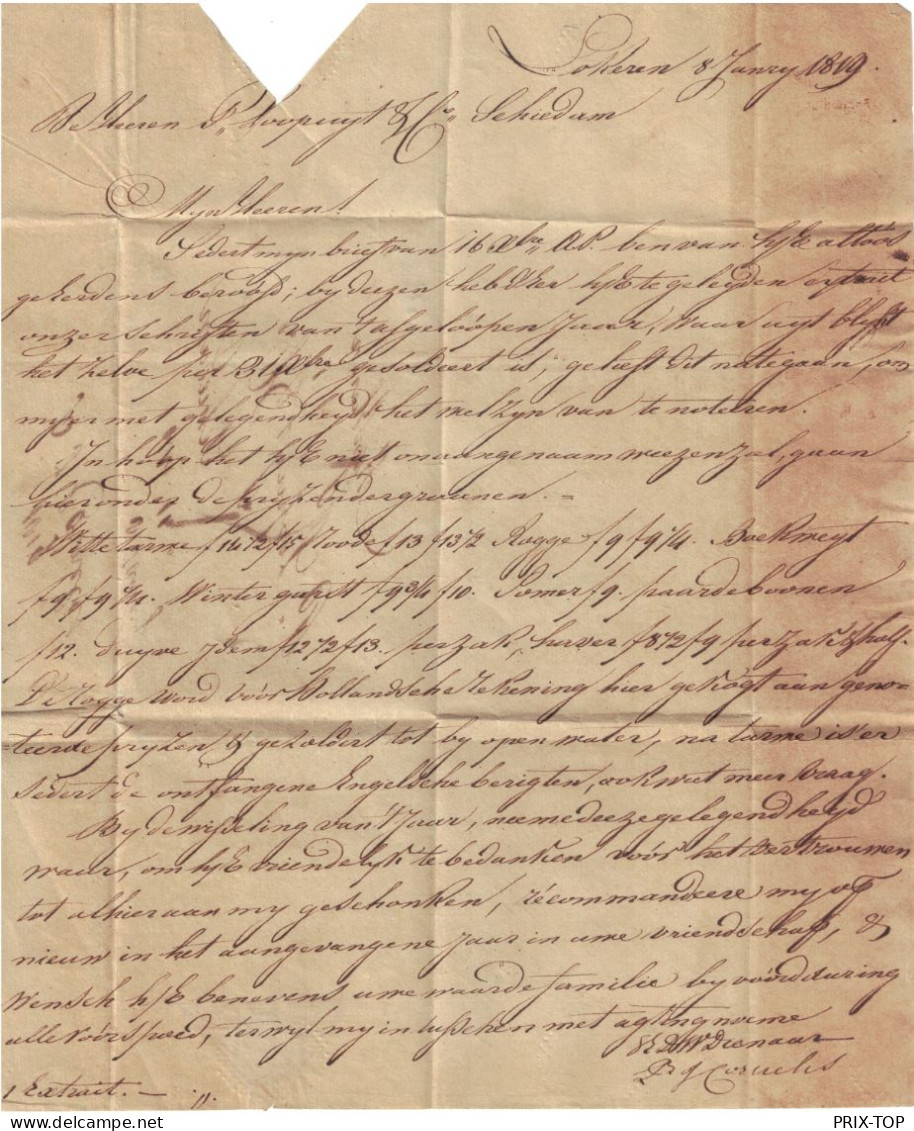 Lokeren 8 Janry 1819.
De Heeren P. Loopuyt & Co. Schiedam
Myn Heeren!
Sedert myn brief van 16 Xbre AP. ben van hE altoos
geeerdens beroofd; by deezen heb ik ter hE te geleyden extrait
onzer schriften van 't afgeloopen Jaar, waar uyt blykt
het zelve per 31 Xbre gesoldeert is, gelieft dit nategaan, om
my er met gelegendheyd het welzyn van te noteeren.
In hoop het hE niet onaangenaam weezen zal, gaan
hieronder de pryzen der graanen. =
Witte tarwe f14½ f15 Roode f13 f13½ Rogge f9 f9¼. Boekweyt
f9 f9¼. Winter garst f9¾ f10. Somer f9. paardeboonen
f12. duyve Idem f12½ f13. per zak, haver f8½ f9 per zak & half.
De rogge word voor Hollandsche rekening hier gekogt aan geno-
teerde pryzen & gezoldert tot by open water, na tarwe is 'er
sedert de ontfangene Engelsche berigten, ook wat meer vraag.
By de wisseling van 't Jaar, neeme deeze gelegendheyd
waar, om hE vriendelyk te bedanken voor het vertrouwen
tot alhier aan my geschonken, recommandeere my op
nieuw in het aangevangene Jaar in uwe vriendschap, &
Wensch hE benevens uwe waarde familie by voordduuring
alle voorspoed, terwyl my intusschen met agting noeme
UEDW Dienaar
Cornelis
1 Extrait. — ,,.
PRIX-TOP